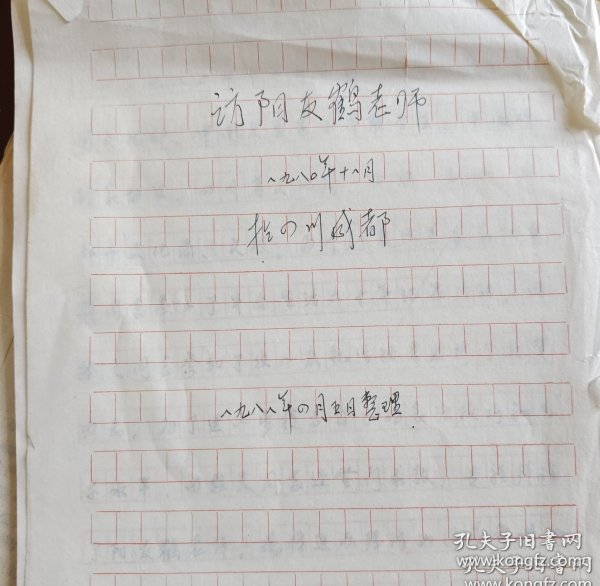 访阳友鹤老师
一九八〇年十一月
于四川成都
一九八八年四月五日整理
孔夫子旧书网
www.kongfz.com
孔夫子旧书网
www.kongfz.com